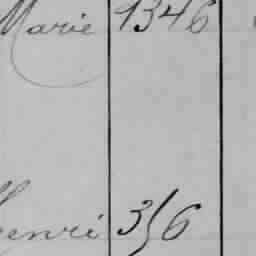 Marie 1346
Henri 356